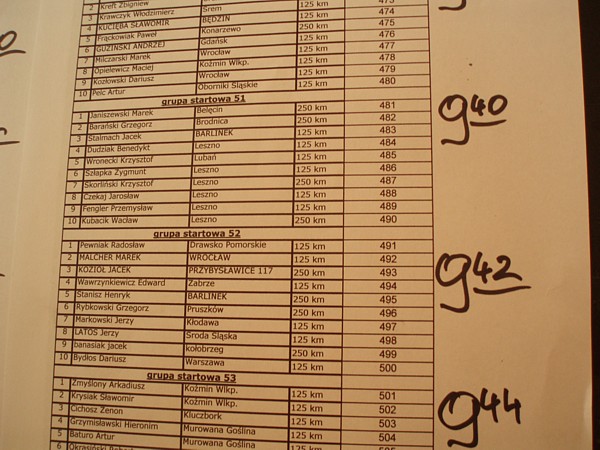 2 Kreft Zbigniew 125 km 473
3 Krawczyk Włodzimierz Śrem 125 km 474
4 KUCIĘBA SŁAWOMIR BĘDZIN 250 km 475
5 Frąckowiak Paweł Konarzewo 125 km 476
6 GUZIŃSKI ANDRZEJ Gdańsk 125 km 477
7 Milczarski Marek Wrocław 125 km 478
8 Opielewicz Maciej Koźmin Wlkp. 125 km 479
9 Kozłowski Dariusz Wrocław 125 km 480
10 Pelc Artur Oborniki Śląskie 125 km
grupa startowa 51
9 40
1 Janiszewski Marek Belęcin 250 km 481
2 Barański Grzegorz Brodnica 250 km 482
3 Stalmach Jacek BARLINEK 125 km 483
4 Dudziak Benedykt Leszno 125 km 484
5 Wronecki Krzysztof Lubań 125 km 485
6 Szłapka Zygmunt Leszno 250 km 486
7 Skorliński Krzysztof Leszno 250 km 487
8 Czekaj Jarosław Leszno 125 km 488
9 Fengler Przemysław Leszno 125 km 489
10 Kubacik Wacław Leszno 250 km 490
grupa startowa 52
9 42
1 Pewniak Radosław Drawsko Pomorskie 125 km 491
2 MALCHER MAREK WROCŁAW 125 km 492
3 KOZIOŁ JACEK PRZYBYSŁAWICE 117 250 km 493
4 Wawrzynkiewicz Edward Zabrze 125 km 494
5 Stanisz Henryk BARLINEK 250 km 495
6 Rybkowski Grzegorz Pruszków 250 km 496
7 Markowski Jerzy Kłodawa 125 km 497
8 LATOS Jerzy Środa Śląska 125 km 498
9 banasiak jacek kołobrzeg 250 km 499
10 Bydłos Dariusz Warszawa 125 km 500
grupa startowa 53
9 44
1 Zmyślony Arkadiusz Koźmin Wlkp. 125 km 501
2 Krysiak Sławomir Koźmin Wlkp. 125 km 502
3 Cichosz Zenon Kluczbork 125 km 503
4 Grzymisławski Hieronim Murowana Goślina 125 km 504
5 Baturo Artur Murowana Goślina 125 km
6